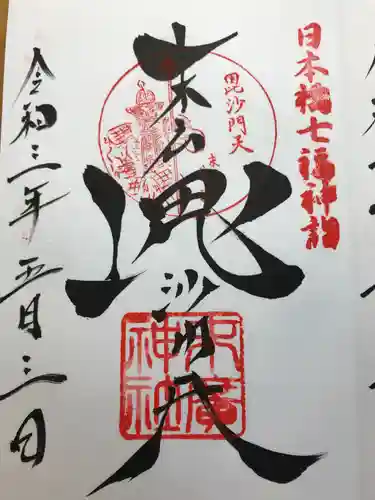 日本橋七福神詣
末広
毘沙門天
毘沙門天
末廣神社
令和三年五月三日